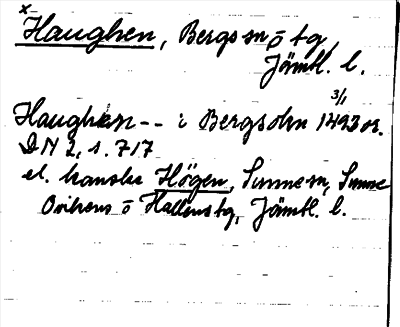 x
Haughen, Bergs sn o tg,
Jämtl. l.
3/1
Haughen -- i Bergsokn 1493 or.
DN 2, s. 717
el. kanske Högen, Sunne sn, Sunne
Ovikens o Hallens tg, Jämtl. l.